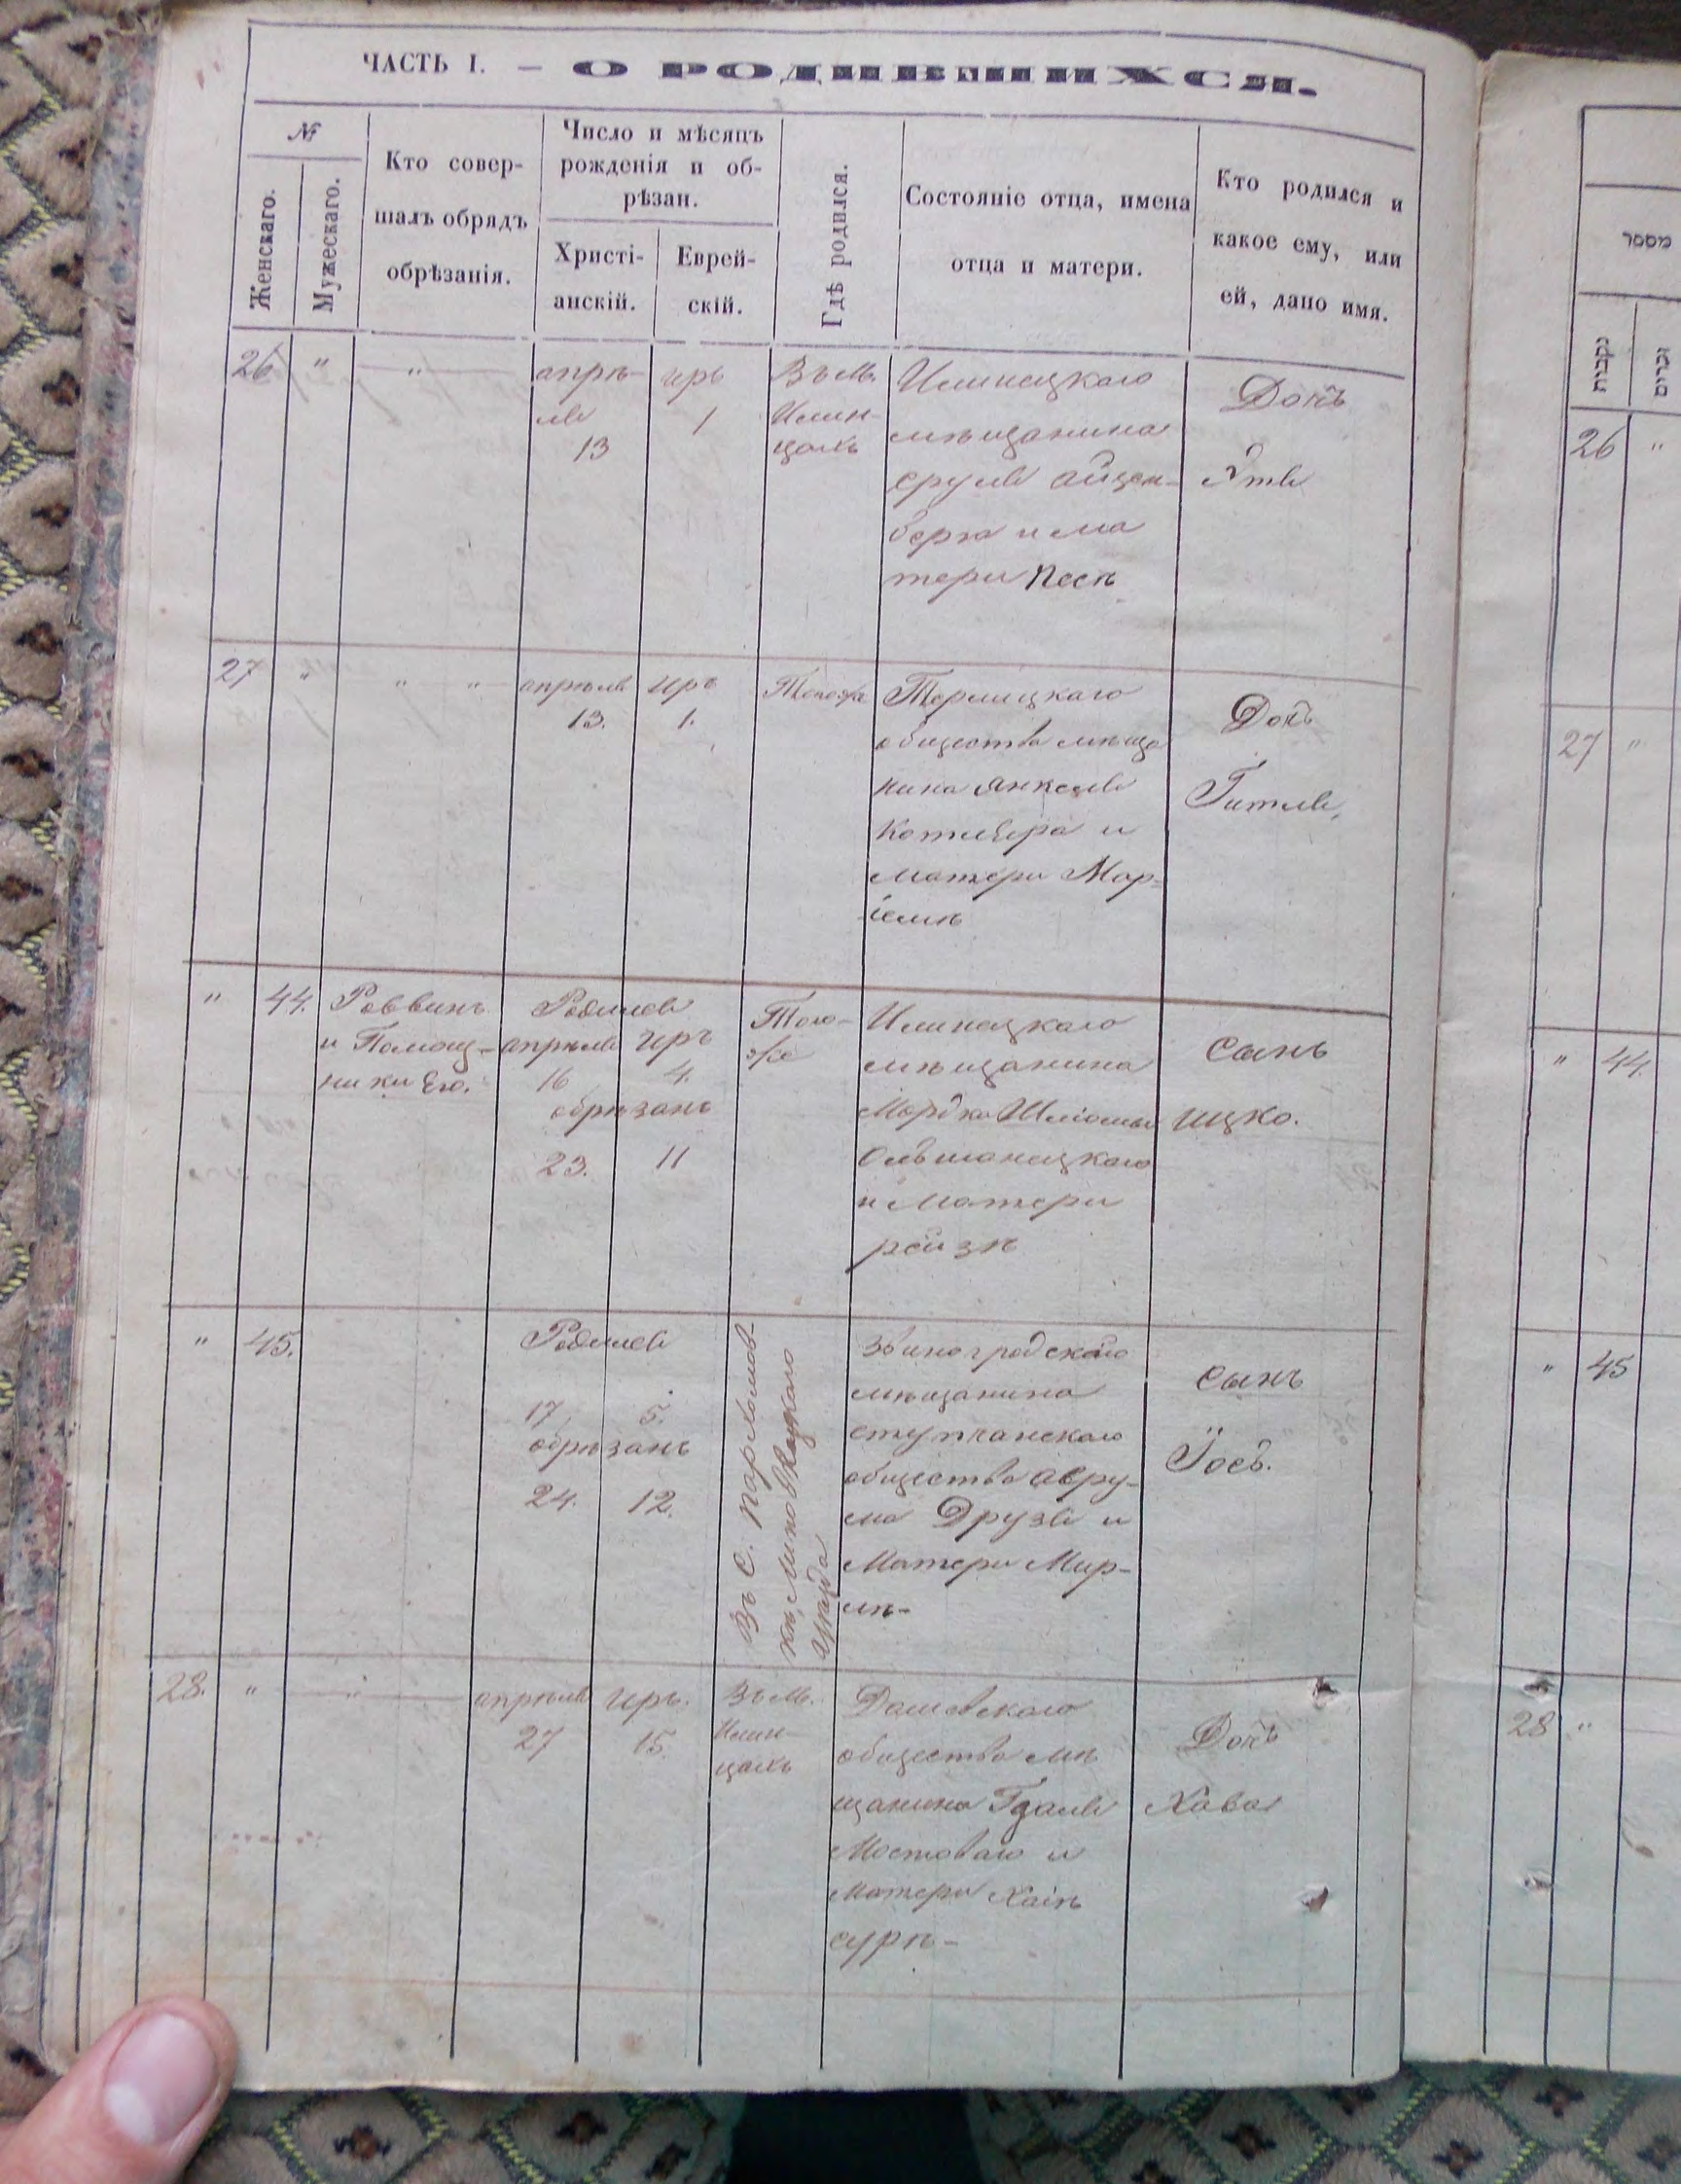 ЧАСТЬ I. — О РОДИВШИХСЯ.
№
Женскаго.
Мужескаго.
Кто совер-
шалъ обрядъ
обрѣзанія.
Число и мѣсяцъ
рожденія и об-
рѣзан.
Христі-
анскій.
Еврей-
скій.
Гдѣ родился.
Состояніе отца, имена
отца и матери.
Кто родился и
какое ему, или
ей, дано имя.
26 " "
апрѣ-
ля
13
иръ
1
Въ м.
Илин-
цахъ
Илинецкаго
мѣщанина
Сруля Айцен-
берга и ма
тери Песѣ
Дочь
Этля
27 " " "
апрѣля
13.
иръ
1.
Тоже
Терлицкаго
общества мѣща
нина Янкеля
Котляра и
матери Мар-
іемѣ
Дочь
Гитля,
" 44.
Раввинъ
и Помощ-
ники Его.
Родился
апрѣля иръ
16 4.
обрѣзанъ
23. 11
Того-
же
Илинецкаго
мѣщанина
Мордка Шліомы
Ольшанецкаго
и Матери
рейзѣ
сынъ
ицко.
" 45.
Родился
17 5.
обрѣзанъ
24. 12.
Въ С. Пархомов-
кѣ, Липовецкаго
уѣзда
Звиногродскаго
мѣщанина
общества Авру-
ма Друзя и
Матери Мир-
лѣ-
сынъ
Іось.
28. " "
апрѣля
27
иръ.
15.
Въ м.
Илин-
цахъ
Дашевскаго
общества мѣ
щанина Гдаля
Мостоваго и
матери Хаіѣ
сурѣ-
Дочь
Хава
מספר
נקבות
זכרים
26 "
27 "
" 44.
" 45
28 "